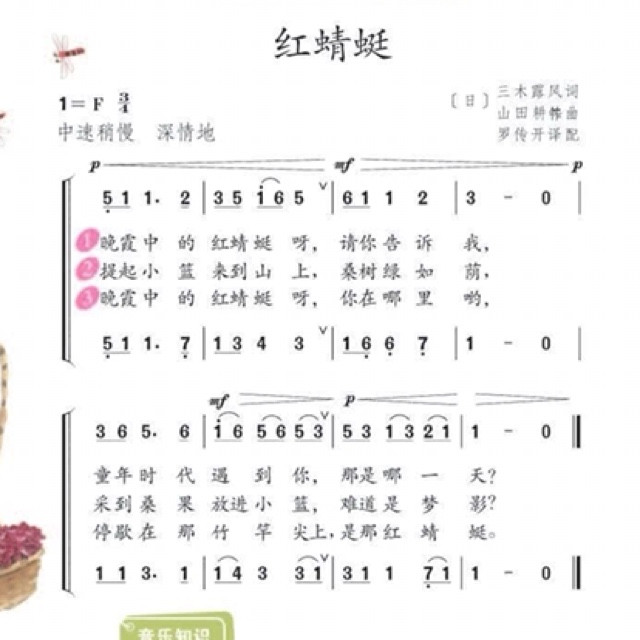 红蜻蜓
1= F 3/4
〔日〕三木露风词
山田耕筰曲
罗传开译配
中速稍慢 深情地
p mf p
5 1 1. 2 | 3 5 i 6 5 ∨ | 6 1 1 2 | 3 - 0 |
1 晚霞中 的 红蜻蜓 呀, 请你告 诉 我,
2 提起小 篮 来到山 上, 桑树绿 如 荫,
3 晚霞中 的 红蜻蜓 呀, 你在哪 里 哟,
5 1 1. 7 | 1 3 4 3 ∨ | 1 6 6 7 | 1 - 0 |
mf p
3 6 5. 6 | i 6 5 6 5 3 ∨ | 5 3 1 3 2 1 | 1 - 0
童年时 代 遇 到 你, 那是哪 一 天?
采到桑 果 放进小 篮, 难道是 梦 影?
停歇在 那 竹 竿 尖上, 是那红 蜻 蜓。
1 1 3. 1 | 1 4 3 3 1 ∨ | 3 1 1 7 1 | 1 - 0
音乐知识